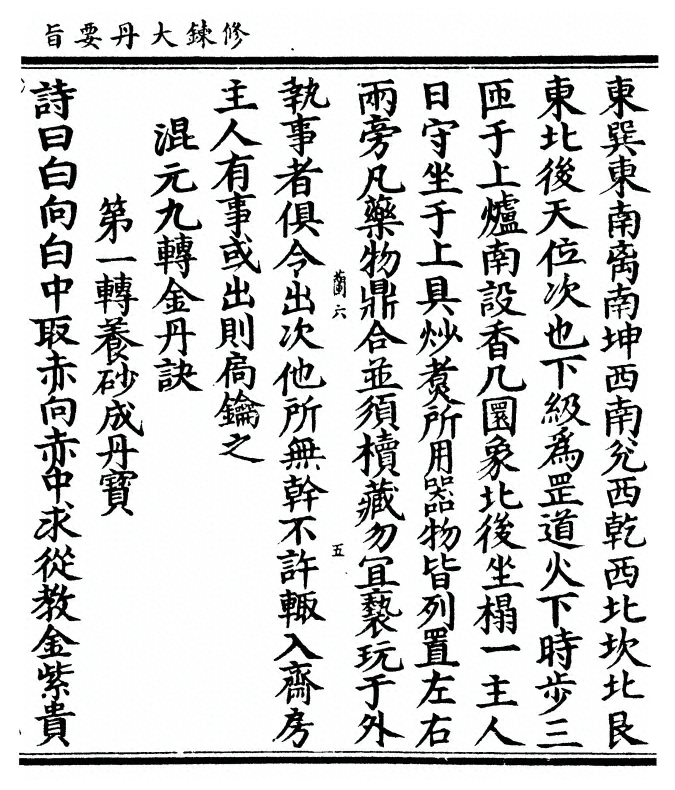 修鍊大丹要旨
東巽東南离南坤西南兊西乾西北坎北艮
東北後天位次也下級為罡道火下時步三
匝于上爐南設香几圜象北後坐榻一主人
日守坐于上具炒煑所用器物皆列置左右
兩旁凡藥物鼎合並須櫝藏勿冝褻玩于外
蘭六
五
執事者俱令出次他所無幹不許輙入齋房
主人有事或出則扃鑰之
混元九轉金丹訣
第一轉養砂成丹寳
詩曰白向白中取赤向赤中求從教金紫貴